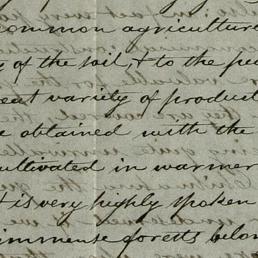 common agriculture
y of the soil, & to the pec
eat variety of product
e obtained with the
ultivated in warmer
t is very highly spoken
immense forests belon